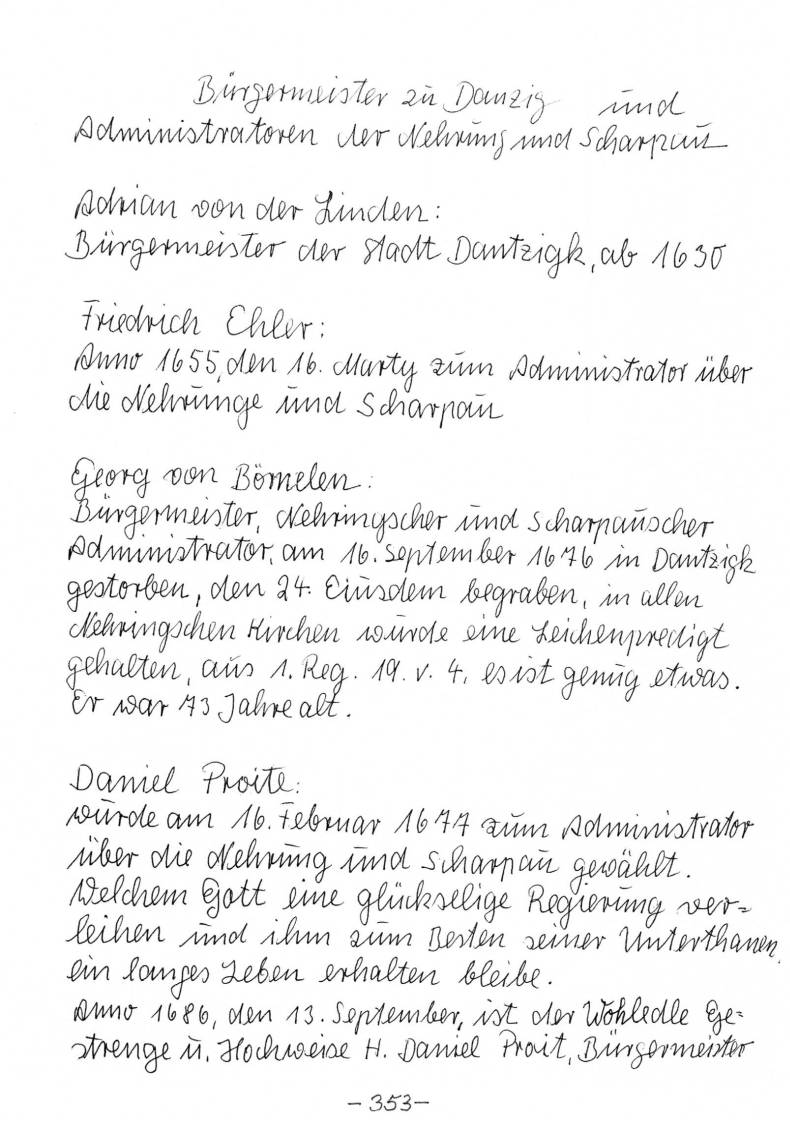 Bürgermeister zu Danzig und
Administratoren der Nehrung und Scharpau
Adrian von der Linden:
Bürgermeister der Stadt Dantzigk, ab 1630
Friedrich Ehler:
Anno 1655, den 16. Marty zum Administrator über
die Nehrunge und Scharpau
Georg von Bömelen:
Bürgermeister, Nehringscher und Scharpauscher
Administrator, am 16. September 1676 in Dantzigk
gestorben, den 24. Eiusdem begraben, in allen
Nehringschen Kirchen wurde eine Leichenpredigt
gehalten, aus 1. Reg. 19. v. 4. es ist genug etwas.
Er war 73 Jahre alt.
Daniel Proite:
wurde am 16. Februar 1677 zum Administrator
über die Nehrung und Scharpau gewählt.
Welchem Gott eine glückselige Regierung ver=
leihen und ihm zum Besten seiner Unterthanen,
ein langes Leben erhalten bleibe.
Anno 1686, den 13. September, ist der Wohledle Ge=
strenge u. Hochweise H. Daniel Proit, Bürgermeister
-353-